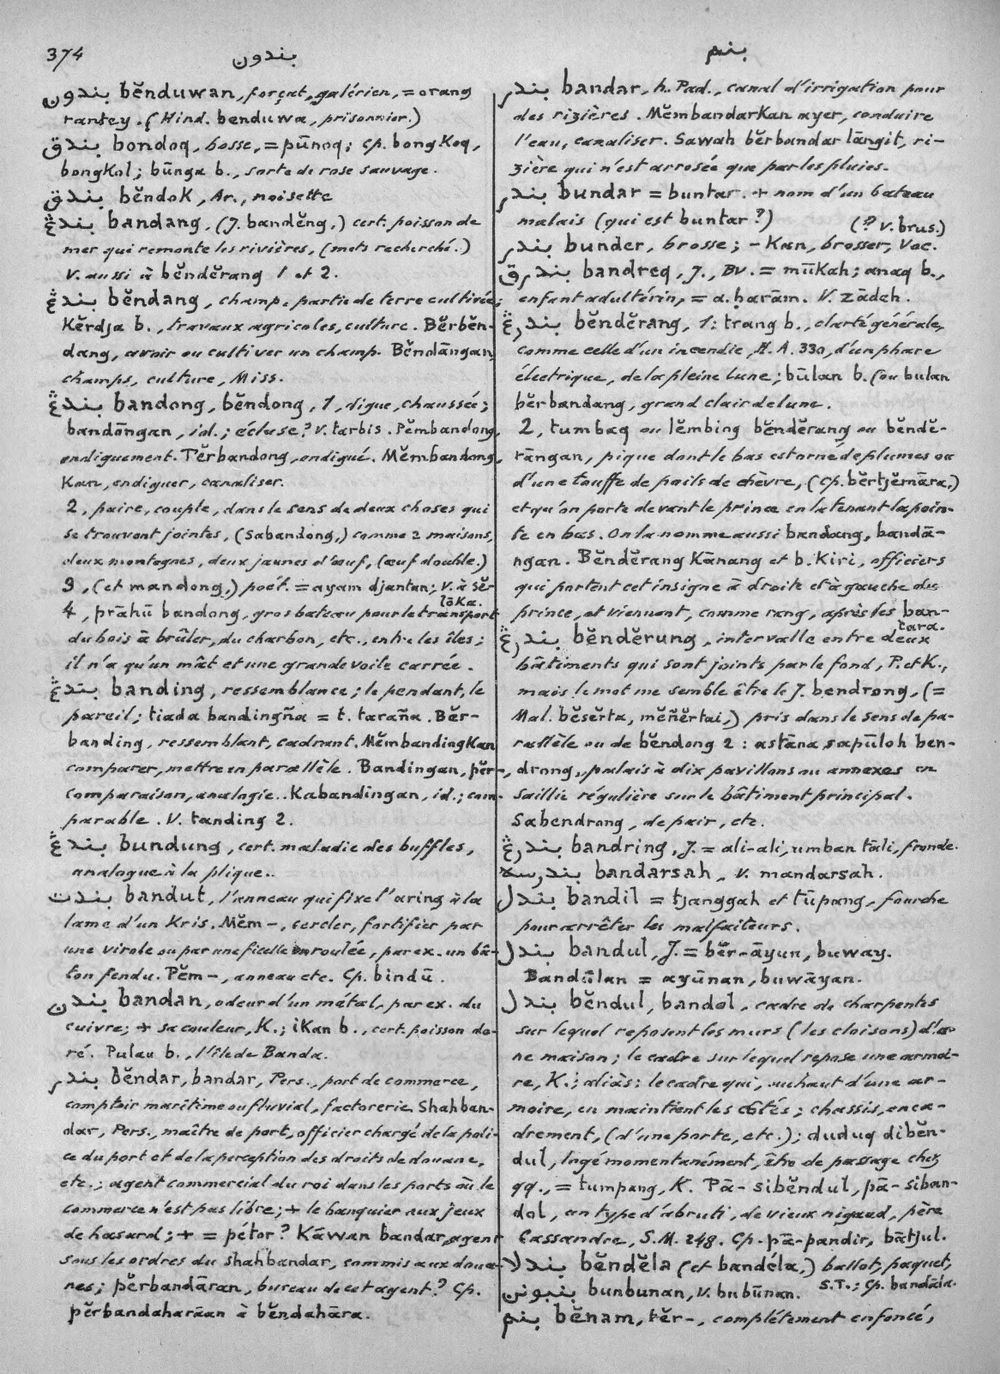 374
بندون
بنم
بندون bĕnduwan, forçat, galérien, = orang
rantey. (Hind. benduwa, prisonnier.)
بندق bondoq, bosse, = pūnoq; Cp. bongKoq,
bongKol; būnga b., sorte de rose sauvage.
بندق bĕndoK, Ar., noisette
بندڠ bandang, (J. bandĕng,) cert. poisson de
mer qui remonte les rivières, (mots recherché.)
V. aussi à bĕndĕrang 1 et 2.
بندڠ bĕndang, champ, partie de terre cultivée;
Kĕrdja b., travaux agricoles, culture. Bĕrbĕn-
dang, avoir ou cultiver un champ. Bĕndāngan,
champs, culture, Miss.
بندڠ bandong, bĕndong, 1, digue, chaussée;
bandōngan, id.; écluse? V. tarbis. Pĕmbandong,
endiguement. Tĕrbandong, endigué. Mĕmbandong
Kan, endiguer, canaliser.
2, paire, couple, dans le sens de deux choses qui
se trouvent jointes, (Sabandong,) comme 2 maisons,
deux montagnes, deux jaunes d'œuf, (œuf double.)
3, (et mandong,) poét. = ayam djantan; V. à Sĕr-
lōKa.
4, prāhū bandong, gros bateau pour le transport
du bois à brûler, du charbon, etc., entre les îles;
il n'a qu'un mât et une grande voile carrée.
بندڠ banding, ressemblance; le pendant, le
pareil; tiada bandingña = t. taraña. Bĕr-
banding, ressemblant, cadrant. MĕmbandingKan
comparer, mettre en parallèle. Bandingan, pĕr-,
comparaison, analogie. Kabandingan, id.; com-
parable. V. tanding 2.
بندڠ bundung, cert. maladie des buffles,
analogue à la plique..
بندت bandut, l'anneau qui fixe l'aring à la
lame d'un Kris. Mĕm-, cercler, fortifier par
une virole ou par une ficelle enroulée, par ex. un bâ-
ton fendu. Pĕm-, anneau etc. Cp. bindū.
بندن bandan, odeur d'un métal, par ex. du
cuivre; + sa couleur, K.; iKan b., cert. poisson do-
ré. Pulau b., l'île de Banda.
بندر bĕndar, bandar, Pers., port de commerce,
comptoir maritime ou fluvial, factorerie. Shahban-
dar, Pers., maître de port, officier chargé de la poli-
ce du port et de la perception des droits de douane,
etc.; agent commercial du roi dans les ports où le
commerce n'est pas libre; + le banquier aux jeux
de hasard; + = pétor? Kāwan bandar, agent
sous les ordres du shahbandar, commis aux doua-
nes; pĕrbandāran, bureau de cet agent? Cp.
pĕrbandaharāan à bĕndahāra.
بندر bandar, h. Pad., canal d'irrigation pour
des rizières. MĕmbandarKan ayer, conduire
l'eau, canaliser. Sawah bĕrbandar lāngit, ri-
zière qui n'est arrosée que par les pluies.
بندر bundar = buntar. + nom d'un bateau
malais (qui est buntar?) (? v. brus.)
بندر bunder, brosse; - Kan, brosser, Voc.
بندرق bandreq, J., BV. = mūKah; anaq b.,
enfant adultérin, = a. ḥarām. V. zādeh.
بندرڠ bĕndĕrang, 1: trang b., clarté générale,
comme celle d'un incendie, H. A. 330, d'un phare
électrique, de la pleine lune; būlan b. (ou bulan
bĕrbandang, grand clair de lune.
2, tumbaq ou lĕmbing bĕndĕrang ou bĕndĕ-
rāngan, pique dont le bas est orné de plumes ou
d'une touffe de poils de chèvre, (Cp. bĕrtjĕmāra.)
et qu'on porte devant le prince en la tenant la poin-
te en bas. On la nomme aussi bandang, bandā-
ngan. Bĕndĕrang Kānang et b. Kiri, officiers
qui portent cet insigne à droite et à gauche du
prince, et viennent, comme rang, après les ban-
tara.
بندرڠ bĕndĕrung, intervalle entre deux
bâtiments qui sont joints par le fond, P. et K.,
mais le mot me semble être le J. bendrong, (=
Mal. bĕsĕrta, mĕñĕrtai,) pris dans le sens de pa-
rallèle ou de bĕndong 2: astāna sapūloh ben-
drong, palais à dix pavillons ou annexes en
saillie régulière sur le bâtiment principal.
Sabendrong, de pair, etc.
بندرڠ bandring, J. = ali-ali, umban tāli, fronde.
بندرسه bandarsah, V. mandarsah.
بندل bandil = tjanggah et tūpang, fourche
pour arrêter les malfaiteurs.
بندل bandul, J. = bĕr-āyun, buway.
Bandūlan = ayūnan, buwāyan.
بندل bĕndul, bandol, cadre de charpentes
sur lequel reposent les murs (les cloisons) d'u-
ne maison; le cadre sur lequel repose une armoi-
re, K.; aliàs: le cadre qui, au haut d'une ar-
moire, en maintient les côtés; chassis, enca-
drement, (d'une porte, etc.); duduq dibĕn-
dul, logé momentanément, être de passage chez
qq., = tumpang, K. Pā-sibĕndul, pā-siban-
dol, un type d'abruti, de vieux nigaud, père
Cassandre, S.M. 248. Cp. pā-pandir, bātjul.
بندلا bĕndĕla (et bandéla,) ballot, paquet,
S.T.; Cp. bandāla.
بنبونن bunbunan, V. bubūnan.
بنم bĕnam, tĕr-, complétement enfoncé,